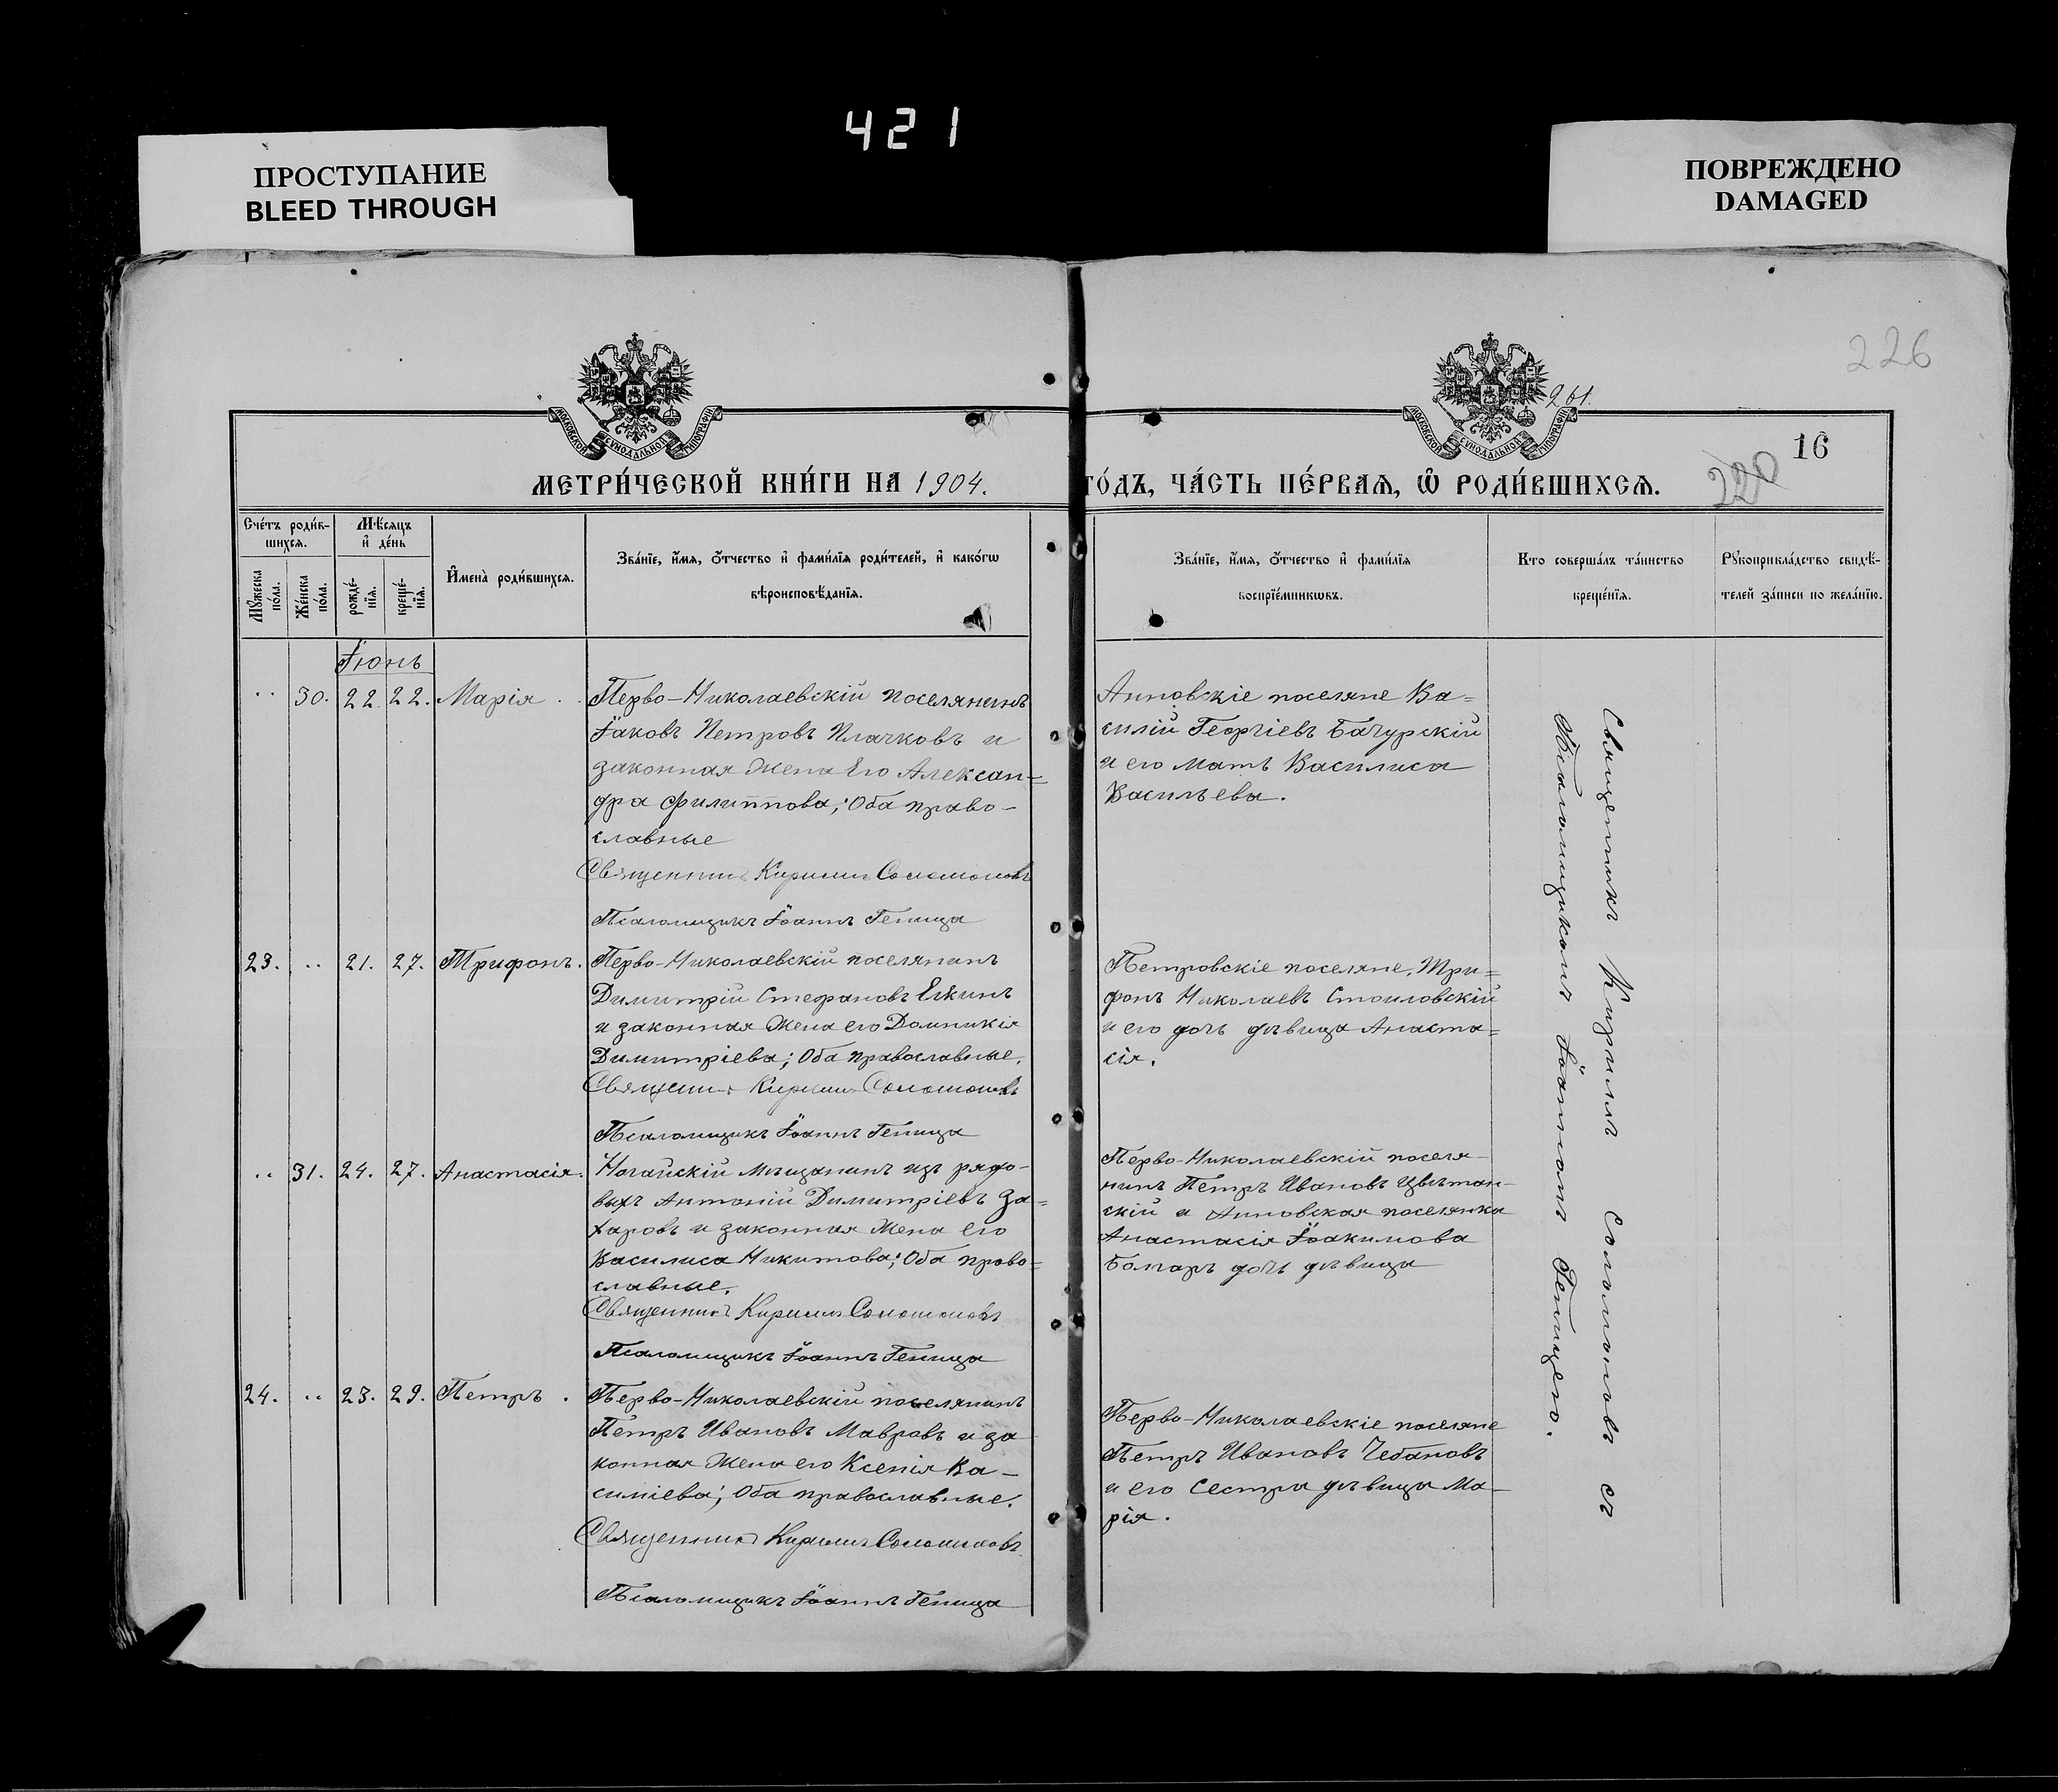 421
ПРОСТУПАНИЕ
BLEED THROUGH
ПОВРЕЖДЕНО
DAMAGED
226
261.
16
220
МОСКОВСКОЙ СѴНОДАЛЬНОЙ ТИПОГРАФІИ
МОСКОВСКОЙ СѴНОДАЛЬНОЙ ТИПОГРАФІИ
МЕТРИ́ЧЕСКОЙ КНИ́ГИ НА 1904. ГО́ДЪ, ЧА́СТЬ ПЕ́РВАѦ, Ѡ РОДИ́ВШИХСѦ.
Сче́тъ роди́в-
шихсѧ.
Мꙋ́жеска по́ла.
Же́нска по́ла.
Мѣ́сѧцъ
и҆ де́нь
рожде́-
нїѧ.
креще́-
нїѧ.
И҆мена̀ роди́вшихсѧ.
Зва́нїе, и҆́мѧ, ѻ҆́тчество и҆ фами́лїѧ роди́телей, и҆ како́гѡ
вѣроисповѣ́данїѧ.
Зва́нїе, и҆́мѧ, ѻ҆́тчество и҆ фами́лїѧ
воспрїе́мникѡвъ.
Кто соверша́лъ та́инство
креще́нїѧ.
Рꙋкоприкла́дство свидѣ́-
телей за́писи по жела́нїю.
Іюнь
.. 30. 22. 22. Марія .
Перво-Николаевскій поселянинъ
Іаковъ Петровъ Плачковъ и
законная жена Его Алексан=
дра Филиппова; Оба право-
славные
Священникъ Кириллъ Соломоновъ
Псаломщикъ Іоаннъ Геница
Анновскіе поселяне Ва=
силій Георгіевъ Бачурскій
и его мать Василиса
Васильева.
23. .. 21. 27. Трифонъ.
Перво-Николаевскій поселянинъ
Димитрій Стефановъ Елкинъ
и законная жена его Домникія
Димитріева; Оба православные.
Священникъ Кириллъ Соломоновъ
Псаломщикъ Іоаннъ Геница
Петровскіе поселяне, Три=
фонъ Николаевъ Стоиловскій
и его дочь дѣвица Анаста=
сія.
.. 31. 24. 27. Анастасія.
Ногайскій мѣщанинъ изъ рядо-
выхъ Антоній Димитріевъ За=
харовъ и законная жена его
Василиса Никитова; Оба право=
славные.
Священникъ Кириллъ Соломоновъ
Псаломщикъ Іоаннъ Геница
Перво-Николаевскій поселя-
нинъ Петръ Ивановъ Цвѣтан-
скій и Анновская поселянка
Анастасія Іоакимова
Бомаръ дочь дѣвица
24. .. 23. 29. Петръ .
Перво-Николаевскій поселянинъ
Петръ Ивановъ Мавровъ и за
конная жена его Ксенія Ва-
силіева; Оба православные.
Священникъ Кириллъ Соломоновъ
Псаломщикъ Іоаннъ Геница
Перво-Николаевскіе поселяне
Петръ Ивановъ Чебановъ
и его сестра дѣвица Ма-
рія.
Священникъ Кириллъ Соломоновъ съ
Псаломщикомъ Іоанномъ Геницею.